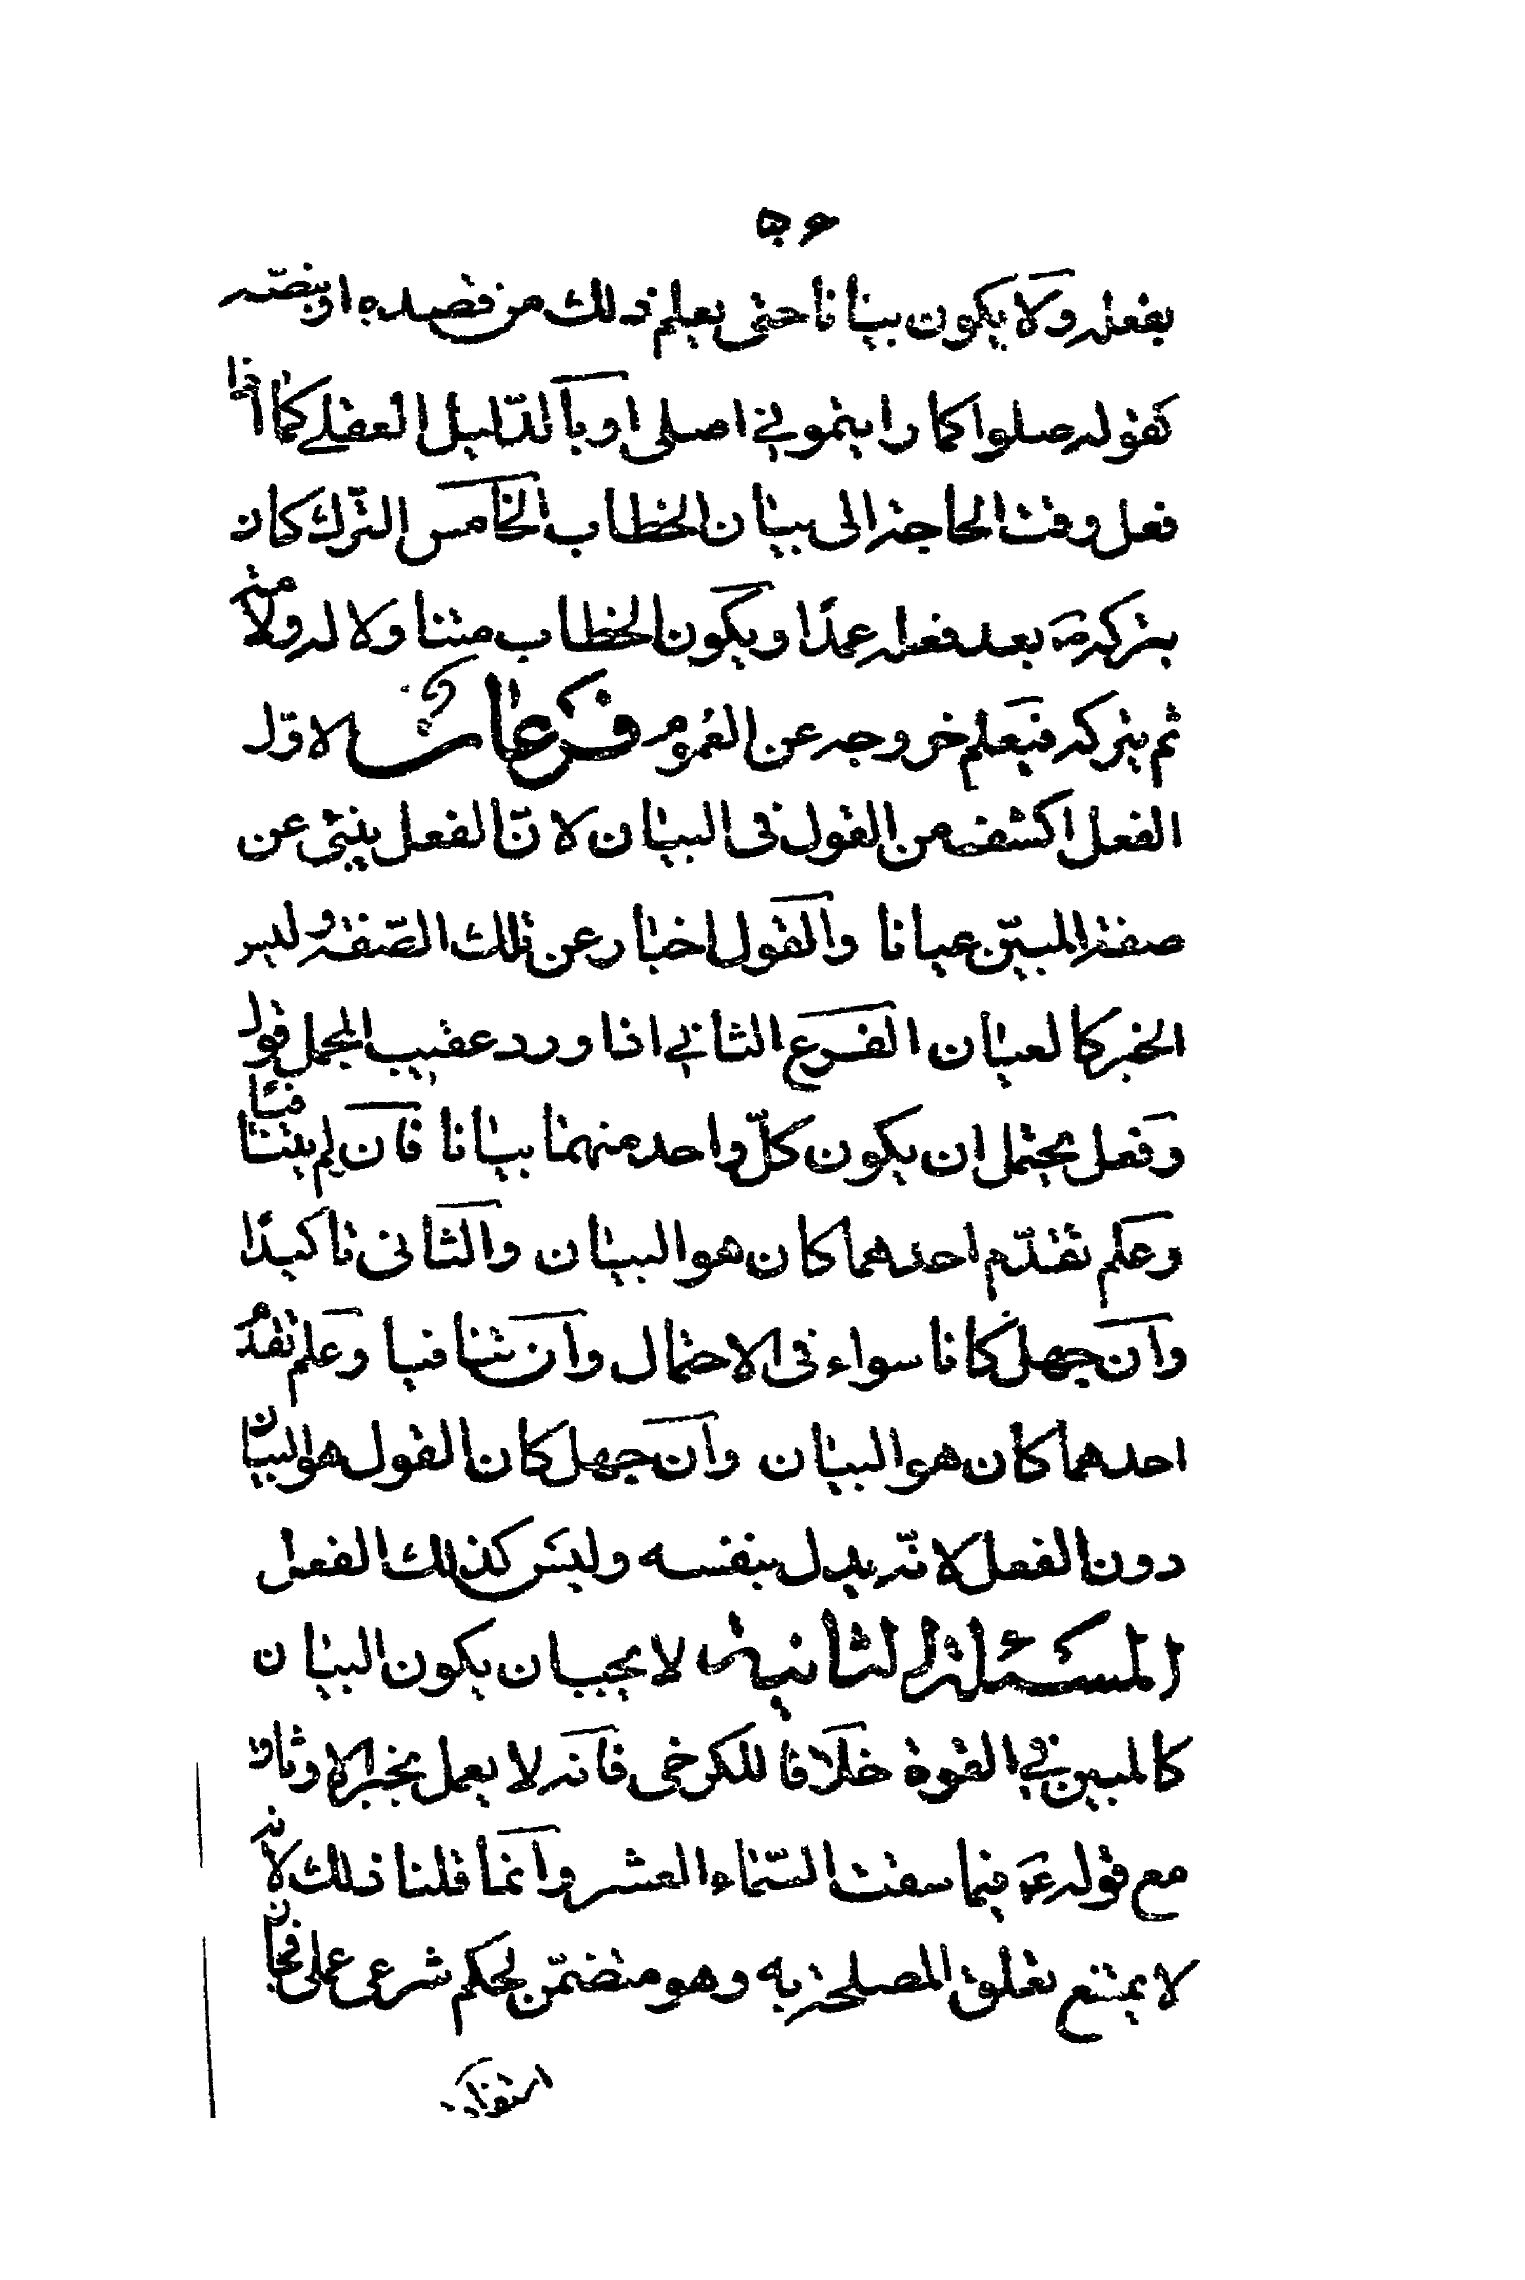 ۵۶
بفعله ولا يكون بيانا حتى يعلم ذلك من قصده او بنصّه
كقوله صلوا كما رايتموني اصلى او بالدّليل العقلے كما اذا
فعل وقت الحاجة الى بيان الخطاب الخامس الترك كان
يتركه بعد فعله عمدًا ويكون الخطاب متناولا له ولأمته
ثم يتركه فيعلم خروجه عن العموم فرعان الاوّل
الفعل اكشف من القول فى البيان لانّ الفعل ينبئ عن
صفة المبيّن عيانا والقول اخبار عن تلك الصّفة وليس
الخبر كالعيان الفرع الثاني اذا ورد عقيب المجمل قول
وفعل يحتمل ان يكون كلّ واحد منهما بيانا فان لم يتنافيا
وعلم تقدّم احدهما كان هو البيان والثانى تاكيدًا
وان جهل كانا سواء فى الاحتمال وان تنافيا وعلم تقدّم
احدهما كان هو البيان وان جهل كان القول هو البيان
دون الفعل لانّه يدل بنفسه وليس كذلك الفعل
المسئلة الثانية لا يجب ان يكون البيان
كالمبين في القوة خلافا للكرخى فانه لا يعمل بخبر الاوثاق
مع قوله ع فيما سقت السّماء العشر وانما قلنا ذلك لانه
لا يمتنع تعلق المصلحة به وهو متضمّن لحكم شرعى عملى فجان